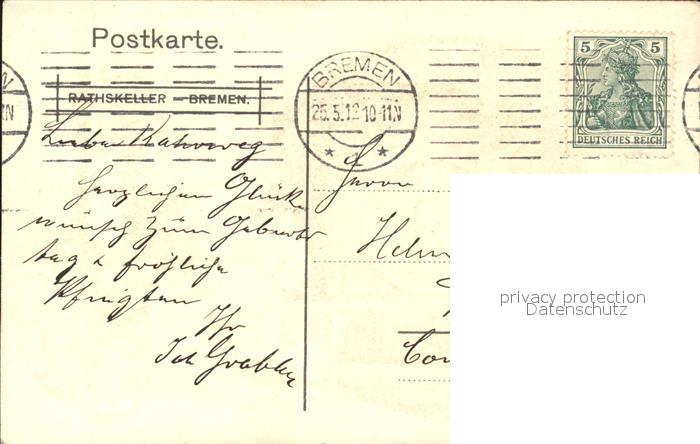 Postkarte.
RATHSKELLER - BREMEN.
BREMEN
25.5.12 10-11N
5 5
DEUTSCHES REICH
Herzlichen Glück
wunsch zum Geburts
tag & fröhliche
Pfingsten
Ihr
Herrn
privacy protection
Datenschutz